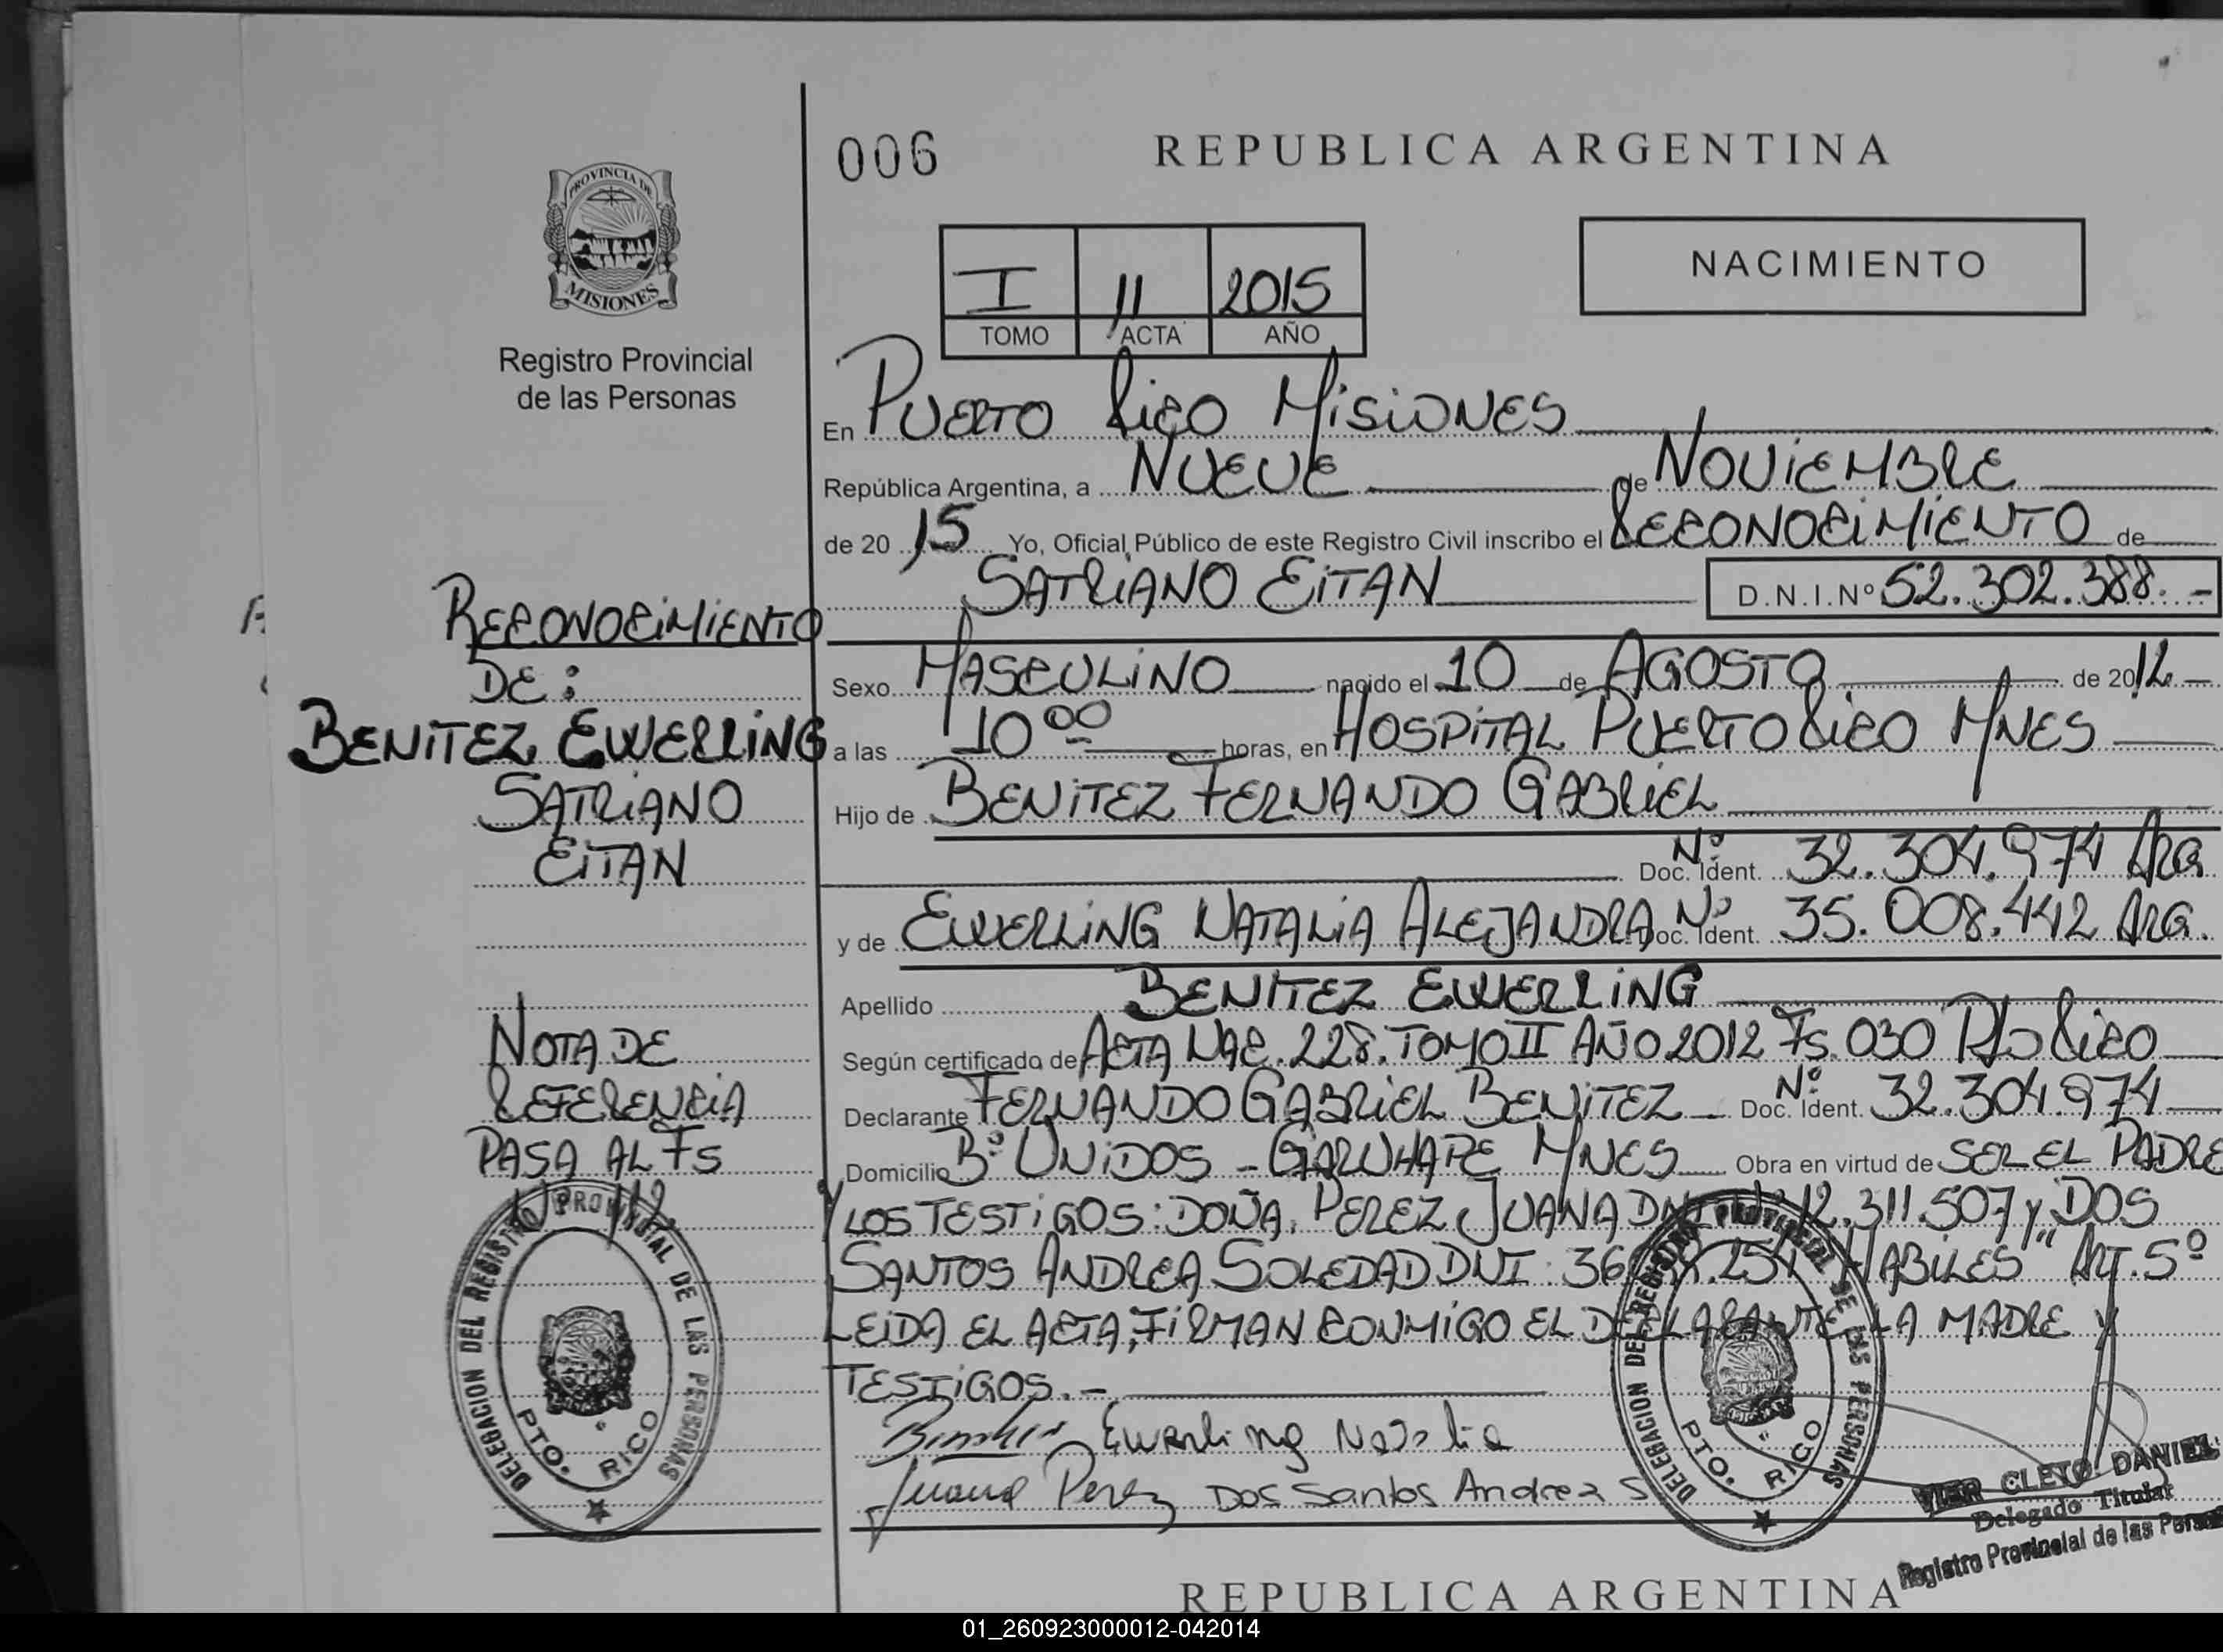 006
REPUBLICA ARGENTINA
PROVINCIA DE
MISIONES
Registro Provincial
de las Personas
NACIMIENTO
I 11 2015
TOMO ACTA AÑO
En PUERTO RICO MISIONES
República Argentina, a NUEVE de NOVIEMBRE
de 20 15 Yo, Oficial Público de este Registro Civil inscribo el RECONOCIMIENTO de
SATRIANO EITAN D.N.I.Nº 52.302.388.-
RECONOCIMIENTO
DE:
BENITEZ EWERLING
SATRIANO
EITAN
Sexo MASCULINO nacido el 10 de AGOSTO de 2012
a las 10 00 horas, en HOSPITAL PUERTO RICO MNES
Hijo de BENITEZ FERNANDO GABRIEL
Doc. Ident. Nº 32.304.974 ARG
y de EWERLING NATALIA ALEJANDRA Doc. Ident. Nº 35.008.442 ARG.
Apellido BENITEZ EWERLING
Según certificado de ACTA NAC. 228. TOMO II AÑO 2012 Fs. 030 Pto RICO
Declarante FERNANDO GABRIEL BENITEZ Doc. Ident. Nº 32.304.974
Domicilio Bº UNIDOS - GARUHAPE MNES Obra en virtud de SER EL PADRE
Y LOS TESTIGOS: DOÑA, PEREZ JUANA DNI 12.311.507 y DOS
SANTOS ANDREA SOLEDAD DNI: 36 "HABILES" ART. 5º
LEIDA EL ACTA, FIRMAN CONMIGO EL DECLARANTE LA MADRE Y
TESTIGOS.-
NOTA DE
REFERENCIA
PASA AL Fs
Ewerling Natalia
Juana Perez Dos Santos Andrea S
DELEGACION DEL REGISTRO PROVINCIAL DE LAS PERSONAS
PTO. RICO
DELEGACION DEL REGISTRO PROVINCIAL DE LAS PERSONAS
PTO. RICO
VIER CLETO DANIEL
Delegado Titular
Registro Provincial de las
REPUBLICA ARGENTINA
01_260923000012-042014